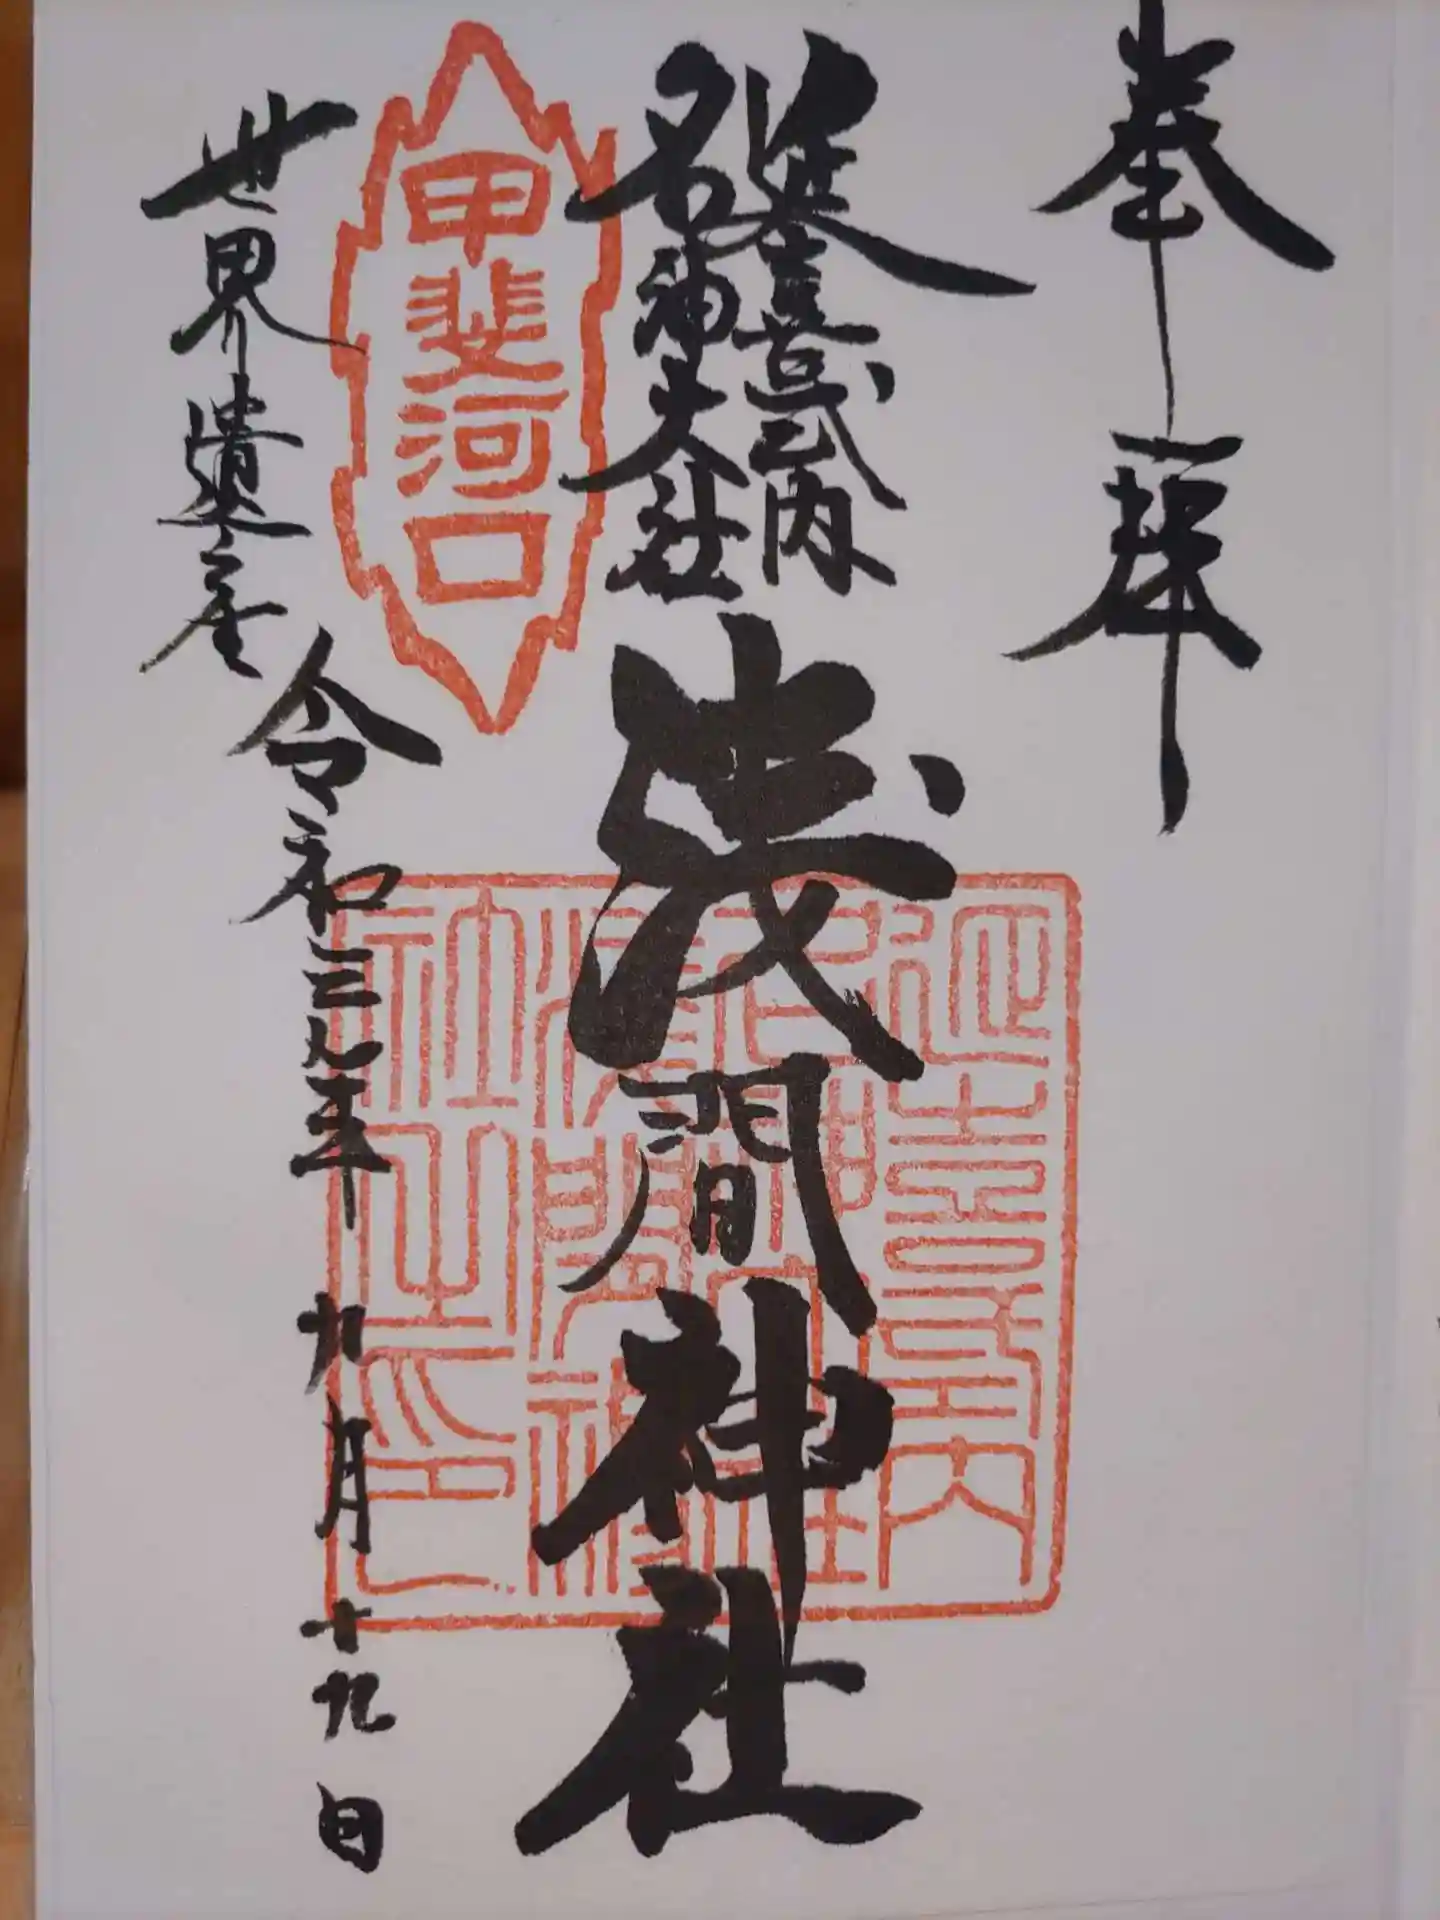 奉拝
延喜式内
名神大社
浅間神社
甲斐河口
世界遺産
令和元年九月十九日
延喜式内
名神大社
淺間神
社之印